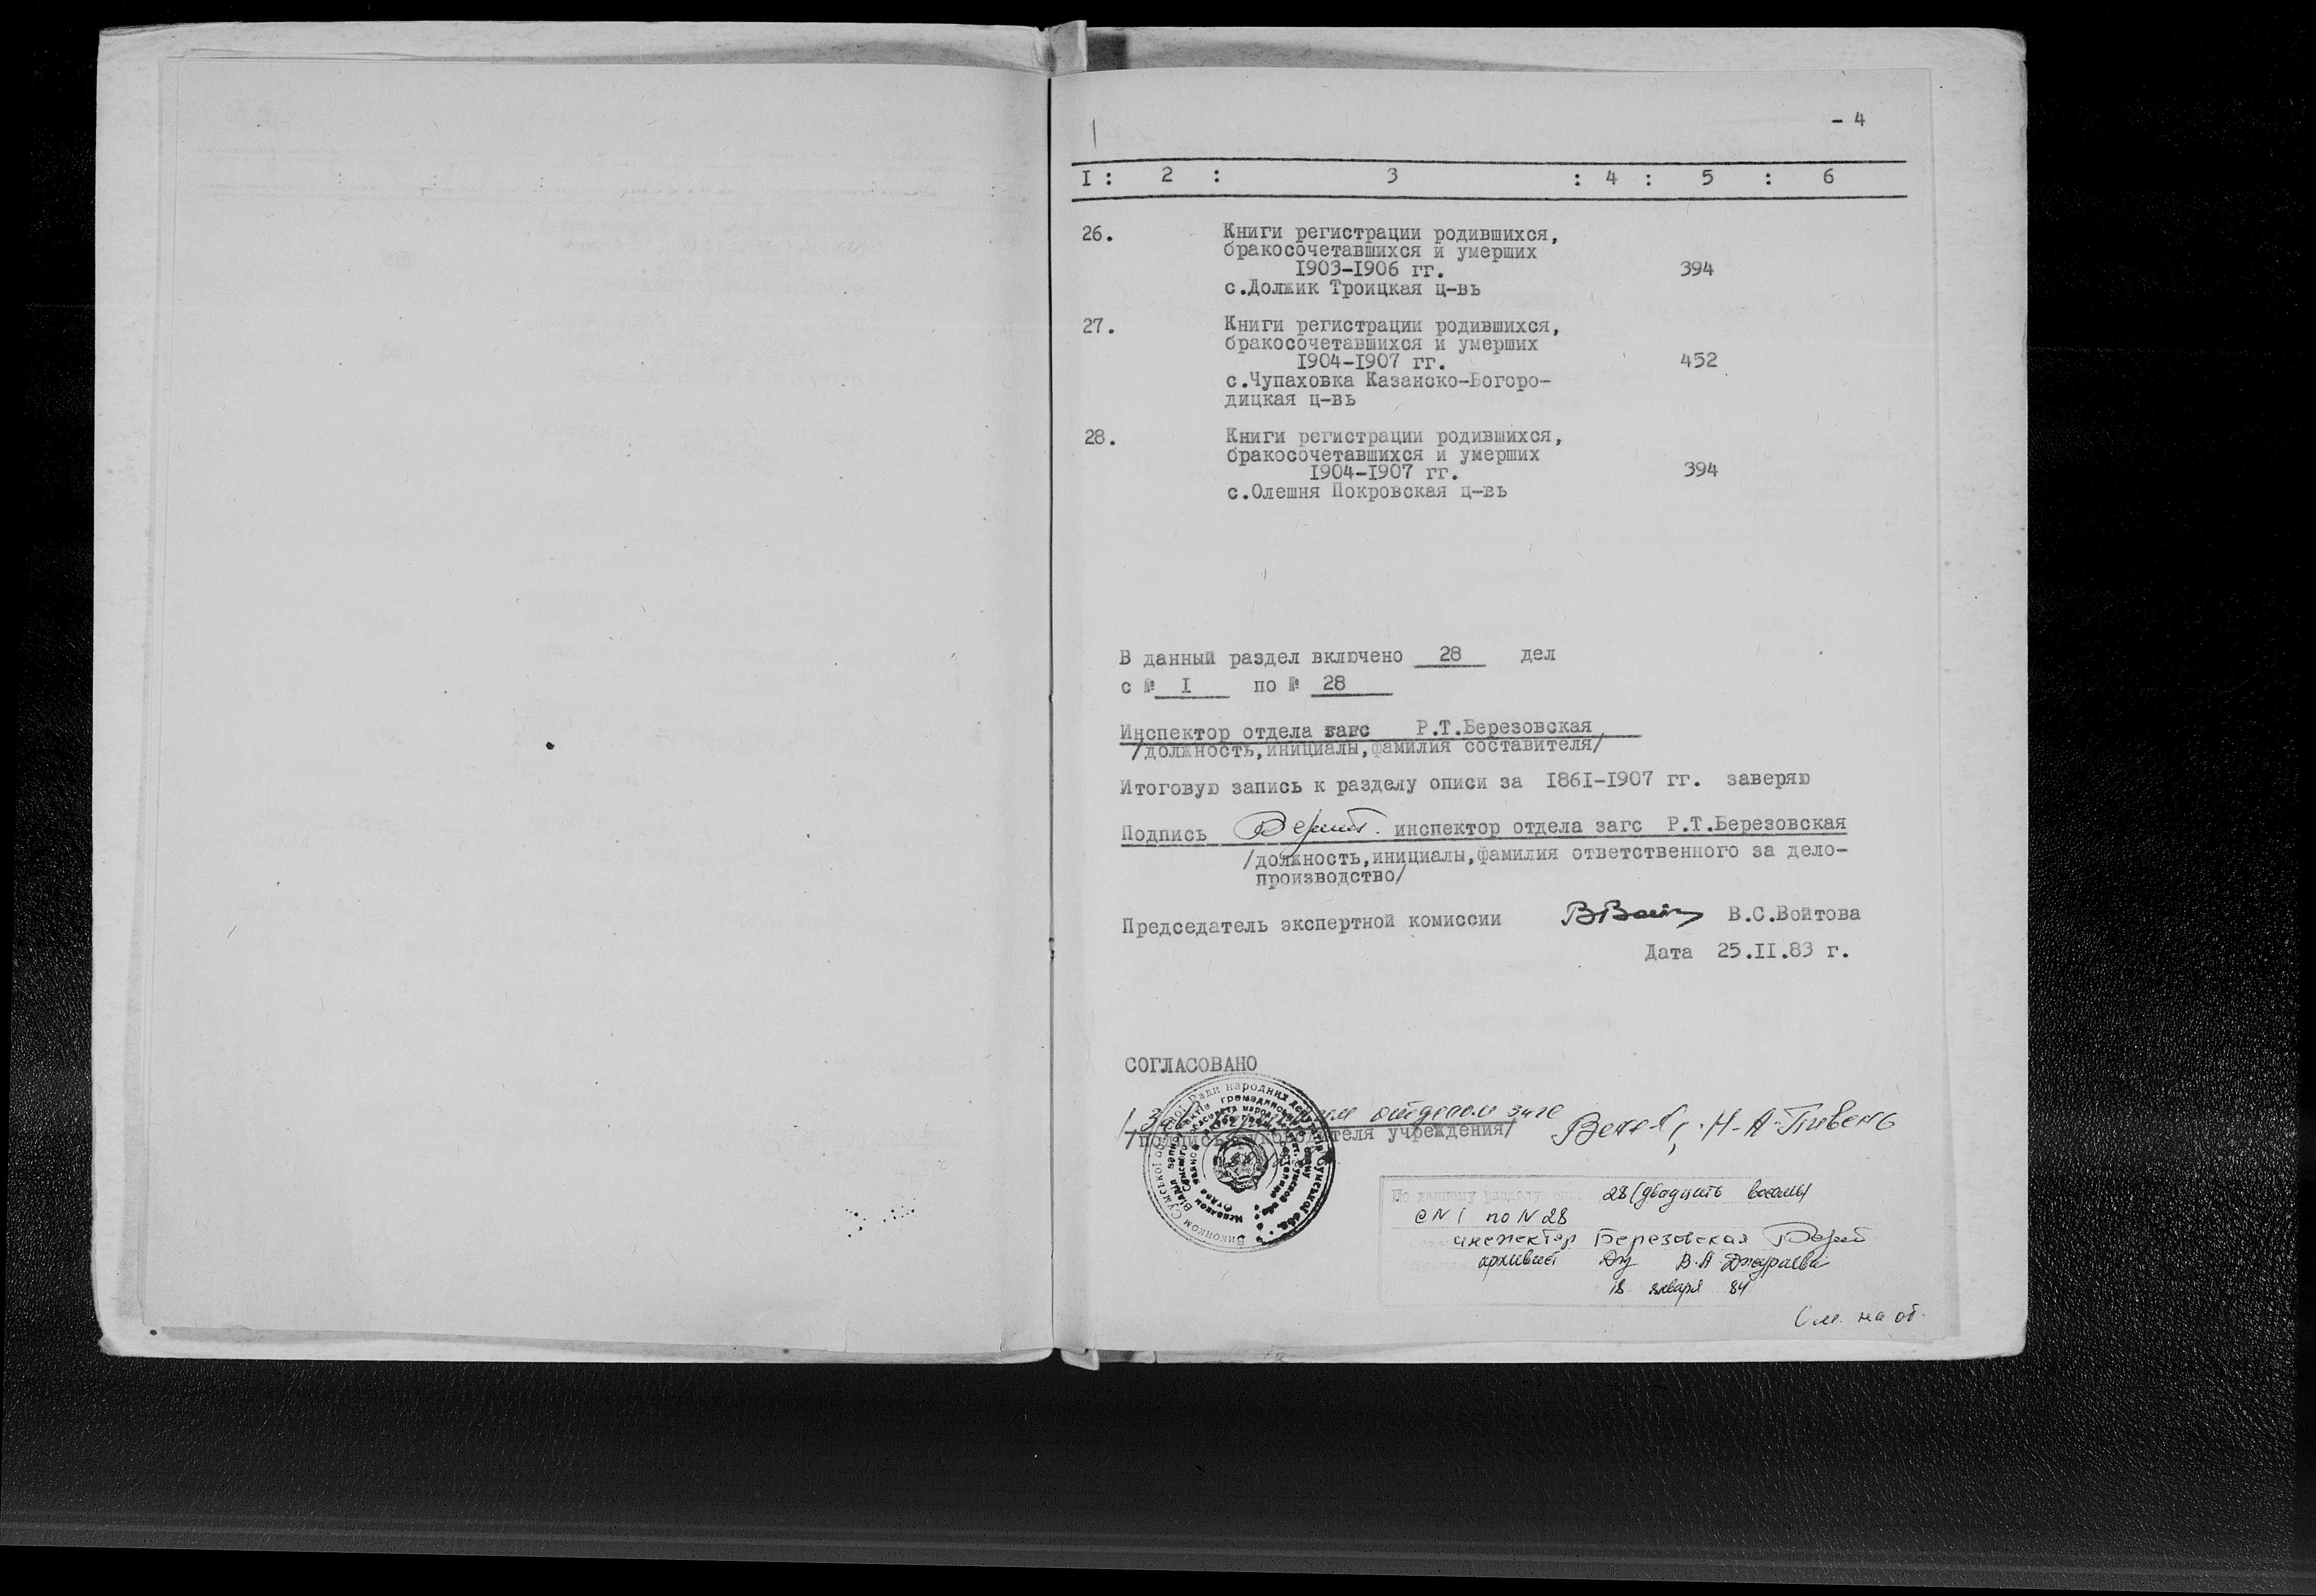 - 4
I : 2 : 3 : 4 : 5 : 6
26. Книги регистрации родившихся,
бракосочетавшихся и умерших
1903-1906 гг. 394
с.Должик Троицкая ц-вь
27. Книги регистрации родившихся,
бракосочетавшихся и умерших
1904-1907 гг. 452
с.Чупаховка Казанско-Богоро-
дицкая ц-вь
28. Книги регистрации родившихся,
бракосочетавшихся и умерших
1904-1907 гг. 394
с.Олешня Покровская ц-вь
В данный раздел включено 28 дел
с № I по № 28
Инспектор отдела загс Р.Т.Березовская
/должность,инициалы,фамилия составителя/
Итоговую запись к разделу описи за 1861-1907 гг. заверяю
Подпись инспектор отдела загс Р.Т.Березовская
/должность,инициалы,фамилия ответственного за дело-
производство/
Председатель экспертной комиссии В.С.Войтова
Дата 25.II.83 г.
СОГЛАСОВАНО
отделом загс Н.А.Пивень
/подпись руководителя учреждения/
По данному разделу 28 (двадцать восемь)
с N 1 по N 28
инспектор Березовская
архивист В.А.
18 января 84
См. на об.